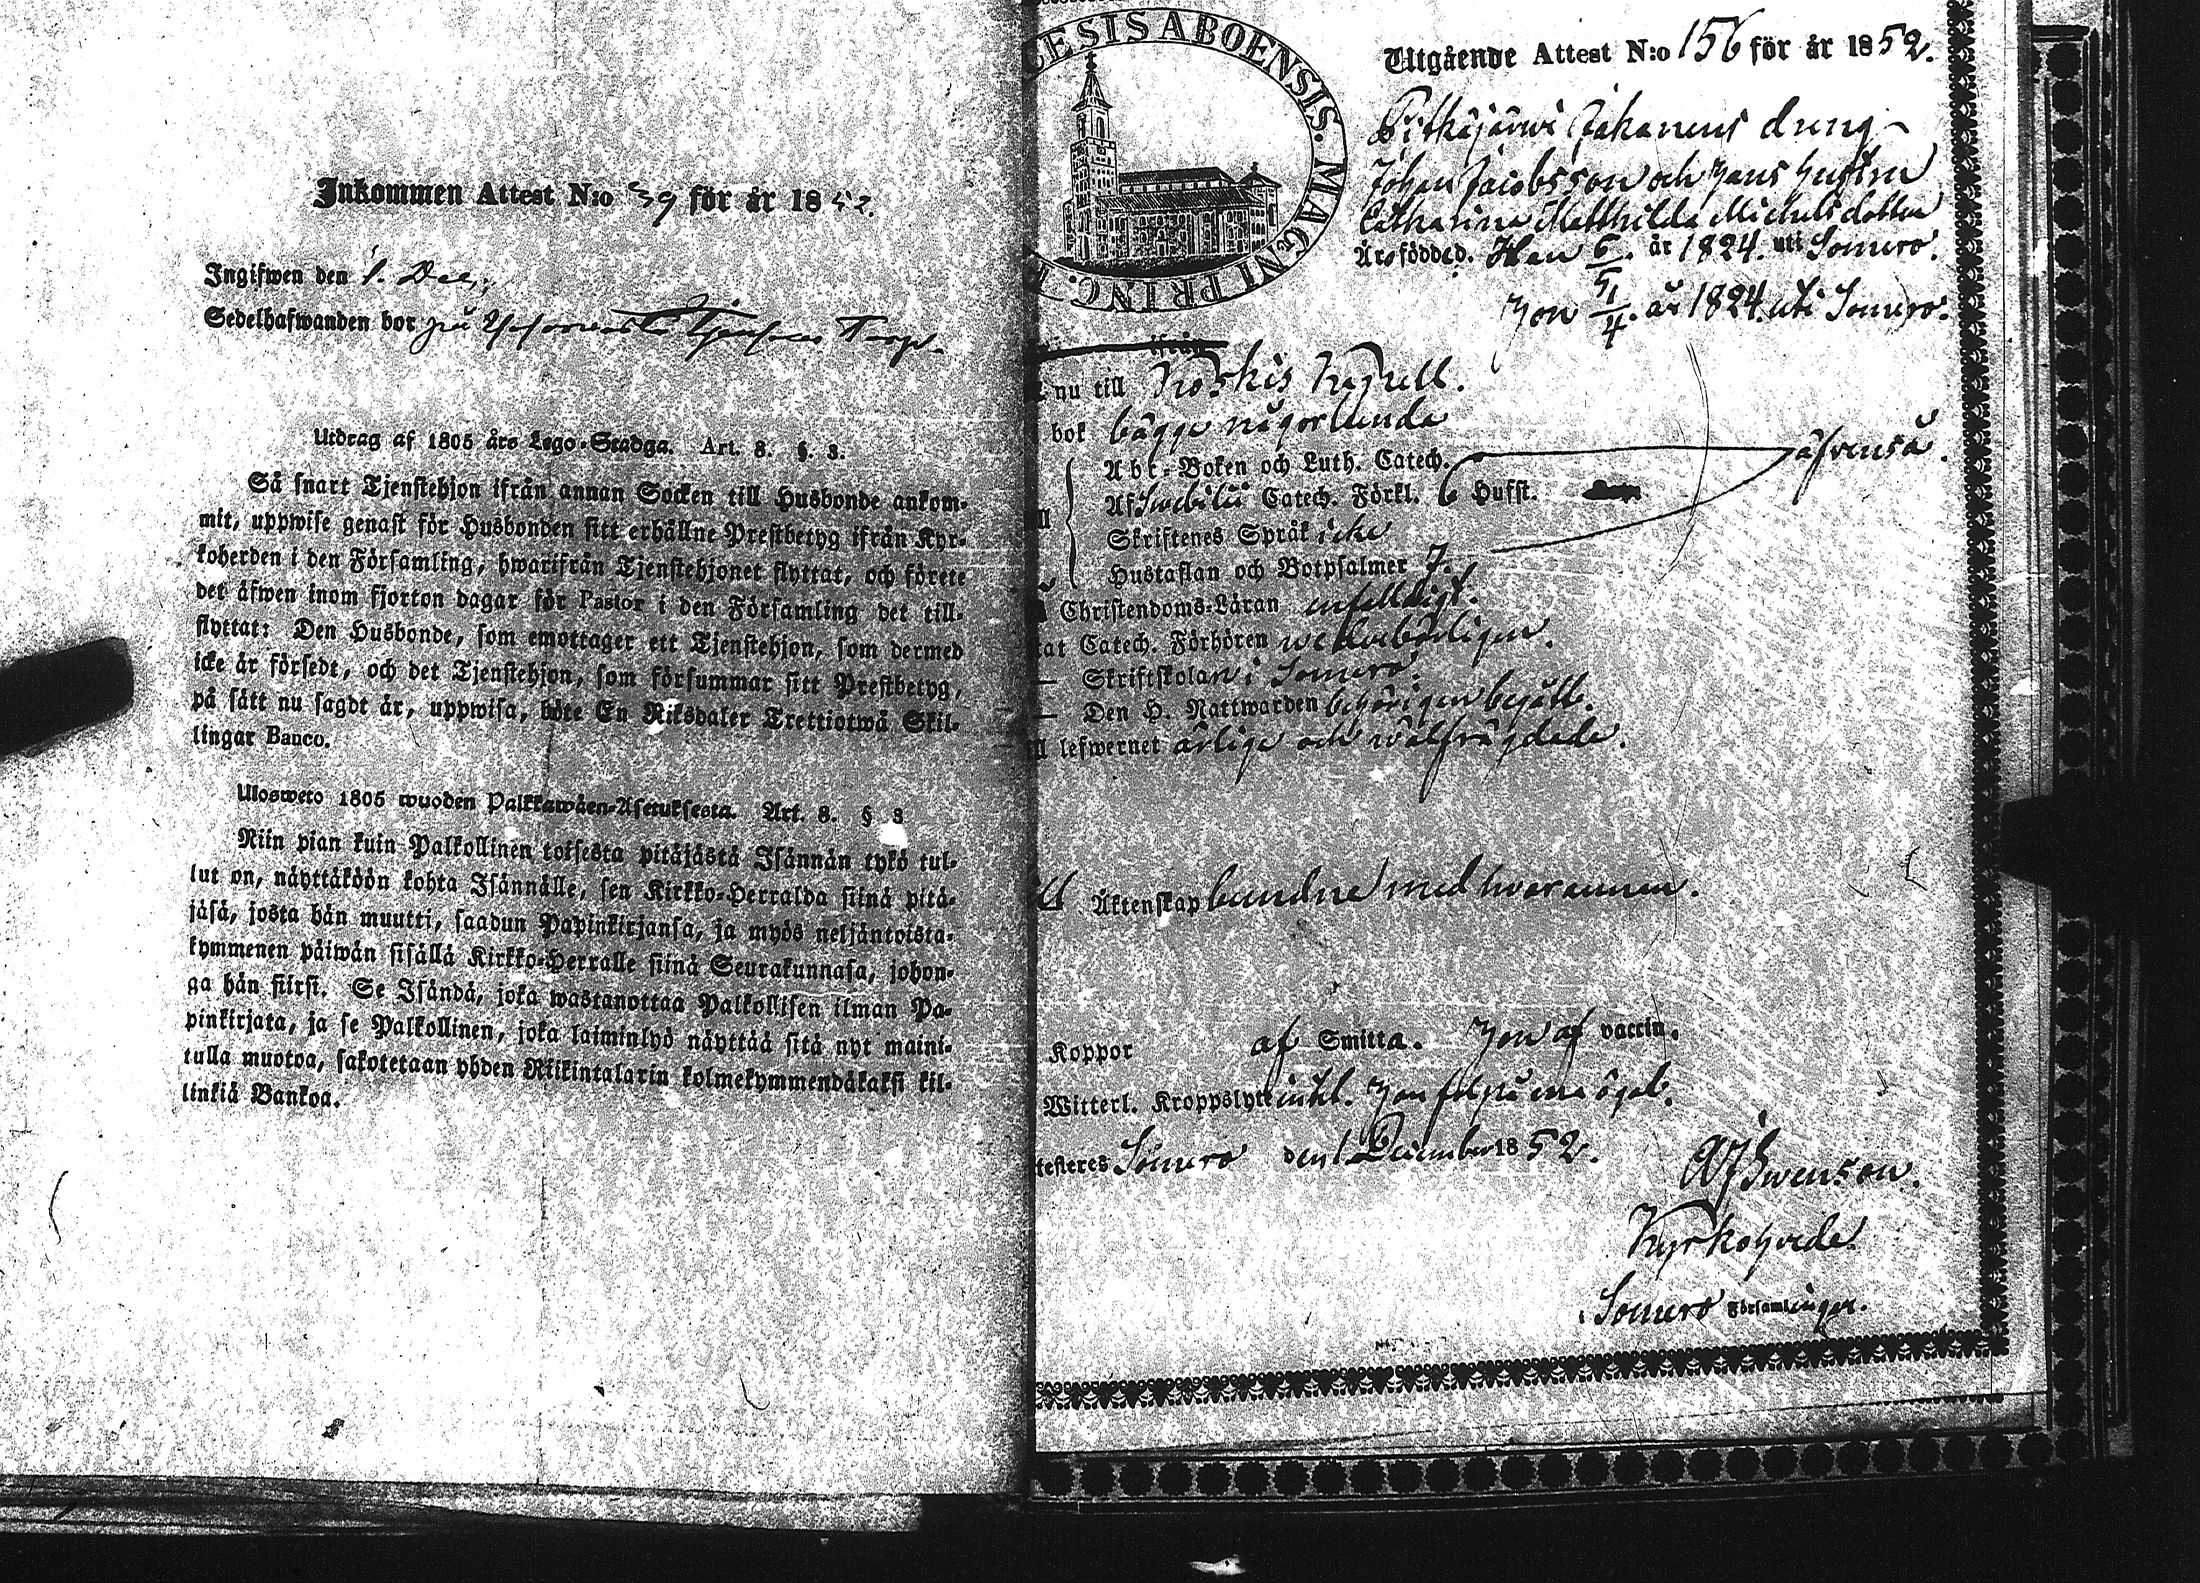 Inkommen Attest N:o 39 för år 1852.
Ingifwen den 1. Dec.
Sedelhafwanden bor på Torp.
Utdrag af 1805 års Lego-Stadga. Art. 8. §. 3.
Så snart Tjenstehjon ifrån annan Socken till Husbonde ankom-
mit, uppwise genast för Husbonden sitt erhållne Prestbetyg ifrån Kyr-
koherden i den Församling, hwarifrån Tjenstehjonet flyttat, och förete
det äfwen inom fjorton dagar för Pastor i den Församling det till-
flyttat: Den Husbonde, som emottager ett Tjenstehjon, som dermed
icke är försedt, och det Tjenstehjon, som försummar sitt Prestbetyg,
på sätt nu sagdt är, uppwisa, böte En Riksdaler Trettiotwå Skil-
lingar Banco.
Ulosweto 1805 wuoden Palkkawäen-Asetuksesta. Art. 8. § 3
Niin pian kuin Palkollinen toisesta pitäjästä Isännän tykö tul-
lut on, näyttäköön kohta Isännälle, sen Kirkko-Herralda siinä pitä-
jäsä, josta hän muutti, saadun Papinkirjansa, ja myös neljäntoista-
kymmenen päiwän sisällä Kirkko-Herralle siinä Seurakunnasa, johon-
ga hän siirsi. Se Isändä, joka wastanottaa Palkollisen ilman Pa-
pinkirjata, ja se Palkollinen, joka laiminlyö näyttää sitä nyt maini-
tulla muotoa, sakotetaan yhden Riikintalarin kolmekymmendäkaksi kil-
linkiä Bankoa.
CESIS ABOENSIS. MAGNI PRINC.
Utgående Attest N:o 156 för år 1852.
Pitkäjärwi Jakanens dreng
Johan Jacobsson och hans hustru
Catharina Mathilda Michelsdotter
Äro födde d. Han 6/5. år 1824. uti Somero.
Hon 51/4. år 1824. uti Somero.
ifrån
nu till Koskis Kapell.
bok bägge någorlunda
Abc-Boken och Luth. Catech.
Af Swebilii Catech. Förkl. 6 Hufst. äfvenså.
Skriftenes Språk icke
Hustaflan och Botpsalmer 7.
Christendoms-Läran enfalldigt.
tat Catech. Förhören wederbörligen.
— Skriftskolan i Somero.
— Den H. Nattwarden behörigen begått.
ll lefwernet ärlige och wälfrägdade.
Äktenskap bundne med hvarannan.
Koppor af Smitta. Hon af vaccin.
Witterl. Kroppslyte intet. Hon fel på ena ögat.
testeres Somero den 1 December 1852.
Swenson.
Kyrkoherde
i Somero Församlingar.